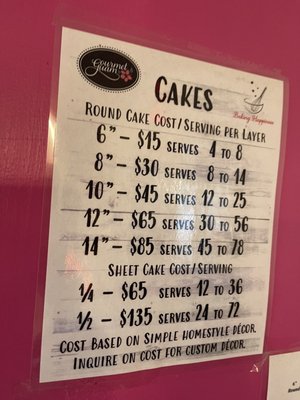 Gourmd
Guam
CAKES
Baking Happiness
ROUND CAKE COST/SERVING PER LAYER
6" - $15 SERVES 4 TO 8
8" - $30 SERVES 8 TO 14
10" - $45 SERVES 12 TO 25
12" - $65 SERVES 30 TO 56
14" - $85 SERVES 45 TO 78
SHEET CAKE COST/SERVING
1/4 - $65 SERVES 12 TO 36
1/2 - $135 SERVES 24 TO 72
COST BASED ON SIMPLE HOMESTYLE DÉCOR.
INQUIRE ON COST FOR CUSTOM DÉCOR.